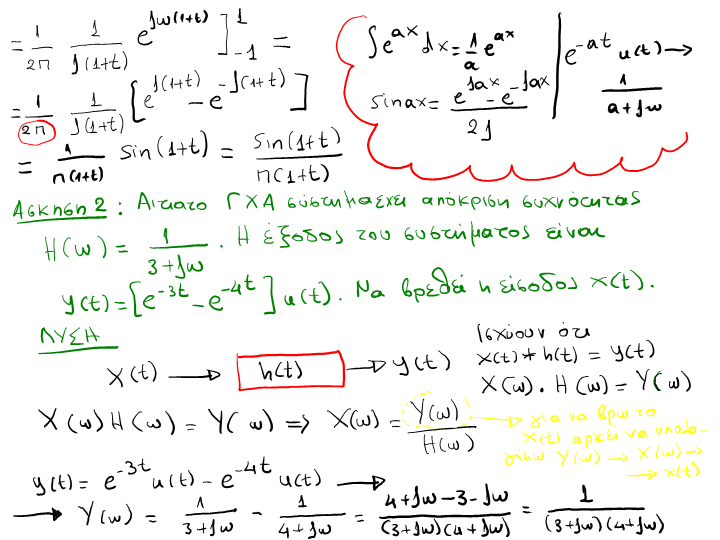 = 1/2π 1/j(1+t) e^{jω(1+t)} ]_{-1}^{1} =
= 1/2π 1/j(1+t) [ e^{j(1+t)} - e^{-j(1+t)} ]
= 1/π(1+t) sin(1+t) = sin(1+t)/π(1+t)
∫e^{ax} dx = 1/a e^{ax}
sinax = (e^{jax} - e^{-jax})/2j
e^{-at} u(t) →
1/(a+jω)
Άσκηση 2 : Αιτιατο ΓΧΑ σύστημα έχει απόκριση συχνότητας
H(ω) = 1/(3+jω) . Η έξοδος του συστήματος είναι
y(t) = [e^{-3t} - e^{-4t}] u(t). Να βρεθεί η είσοδος x(t).
ΛΥΣΗ
x(t) → h(t) → y(t)
Ισχύουν ότι
x(t) * h(t) = y(t)
X(ω) . H(ω) = Y(ω)
X(ω) H(ω) = Y(ω) ⇒ X(ω) = Y(ω)/H(ω)
για να βρω το
x(t) αρκεί να υπολο-
γίσω Y(ω) → X(ω) →
→ x(t)
y(t) = e^{-3t} u(t) - e^{-4t} u(t) →
→ Y(ω) = 1/(3+jω) - 1/(4+jω) = (4+jω-3-jω)/((3+jω)(4+jω)) = 1/((3+jω)(4+jω))